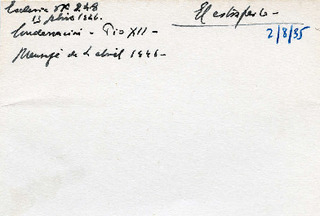 Ecclesia nº 248
13 abril 1946.
Condenación - Pio XII -
Mensaje de 4 abril 1946 -
El estraperlo -
2/8/95